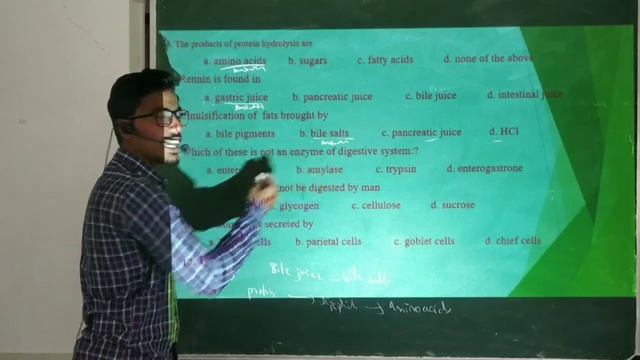 The products of protein hydrolysis are
a. amino acids b. sugars c. fatty acids d. none of the above
answer
Rennin is found in
a. gastric juice b. pancreatic juice c. bile juice d. intestinal juice
answer
Emulsification of fats brought by
a. bile pigments b. bile salts c. pancreatic juice d. HCl
answer
Which of these is not an enzyme of digestive system:?
b. amylase c. trypsin d. enterogastrone
not be digested by man
glycogen c. cellulose d. sucrose
secreted by
cells b. parietal cells c. goblet cells d. chief cells
Bile juice – bile salts
Amino acids